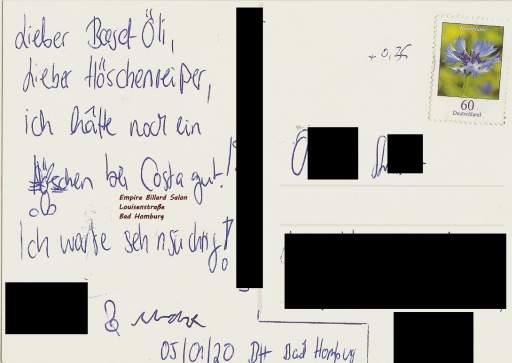 Lieber Baset Öli,
Lieber Höschenreißer,
ich hätte noch ein
Höschen bei Costa gut!
Empire Billard Salon
Louisenstraße
Bad Homburg
Ich warte sehnsüchtig!
05/01/20 DH Bad Homburg
+ 0,36
60
Deutschland